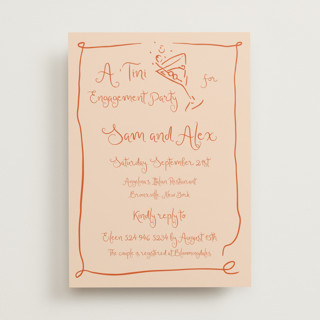 A Tini for
Engagement Party
Sam and Alex
Saturday September 21st
Restaurant
New York
Kindly reply to
Eileen 324 946 3234 by August 15th
The couple is registered at Bloomingdales